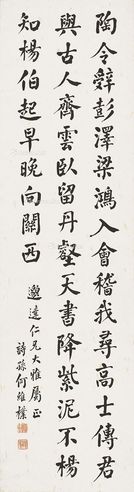 陶令辭彭澤梁鴻入會稽我尋高士傳君
與古人齊雲臥留丹壑天書降紫泥不楊
知楊伯起早晚向關西
邀達仁兄大雅屬正
詩孫何維樸